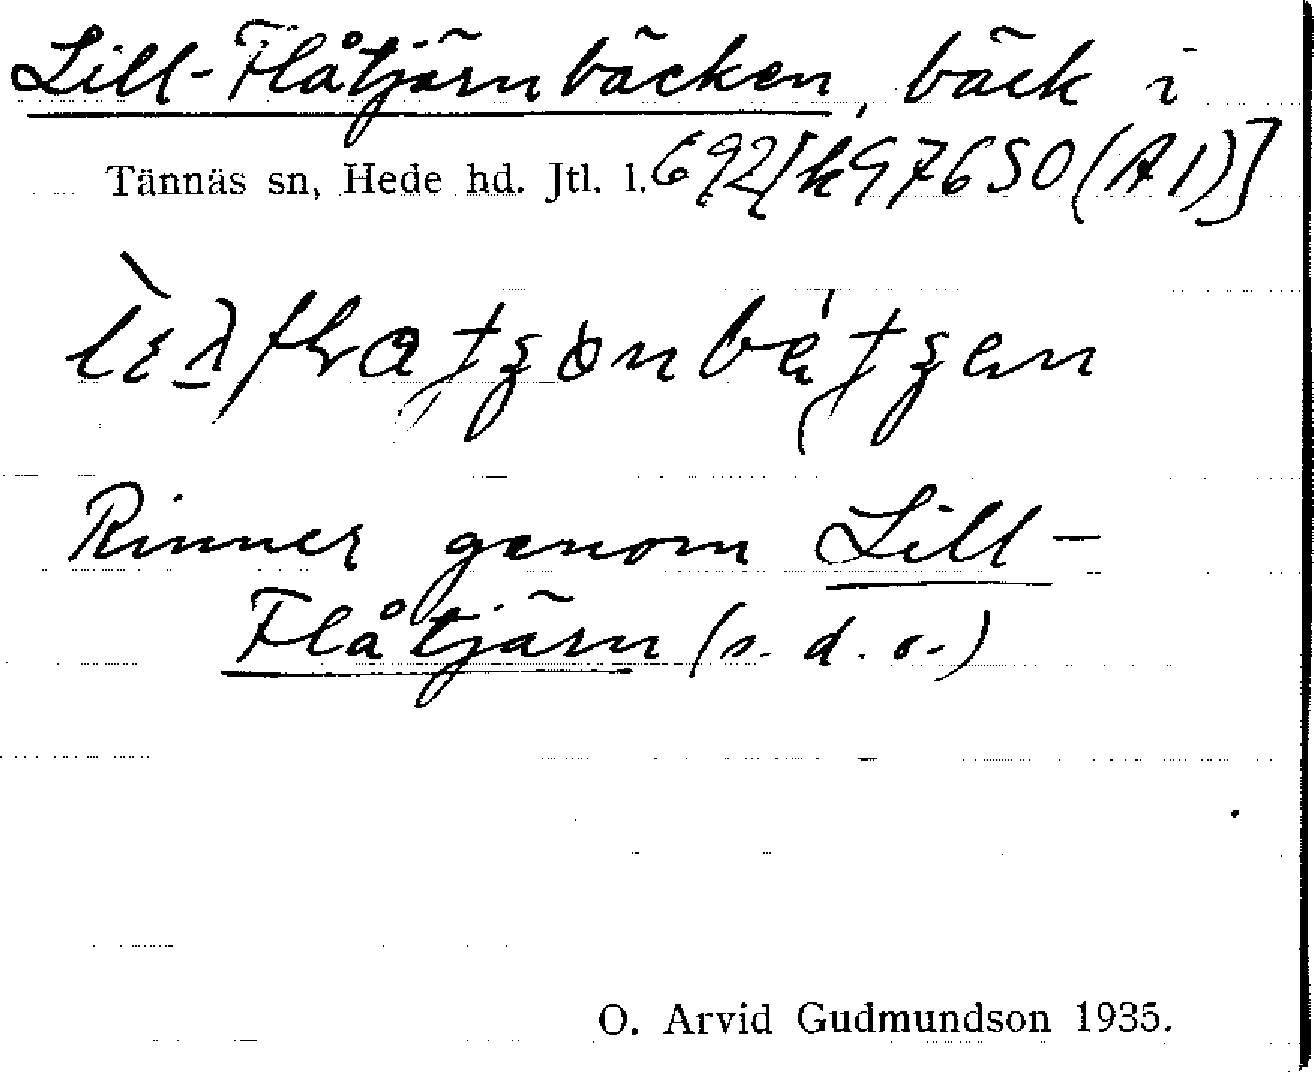 Lill-Flåtjärnbäcken, bäck i
Tännäs sn, Hede hd. Jtl. l. 692[k97650(A1)]
Rinner genom Lill-
Flåtjärn (s. d. o.)
O. Arvid Gudmundson 1935.